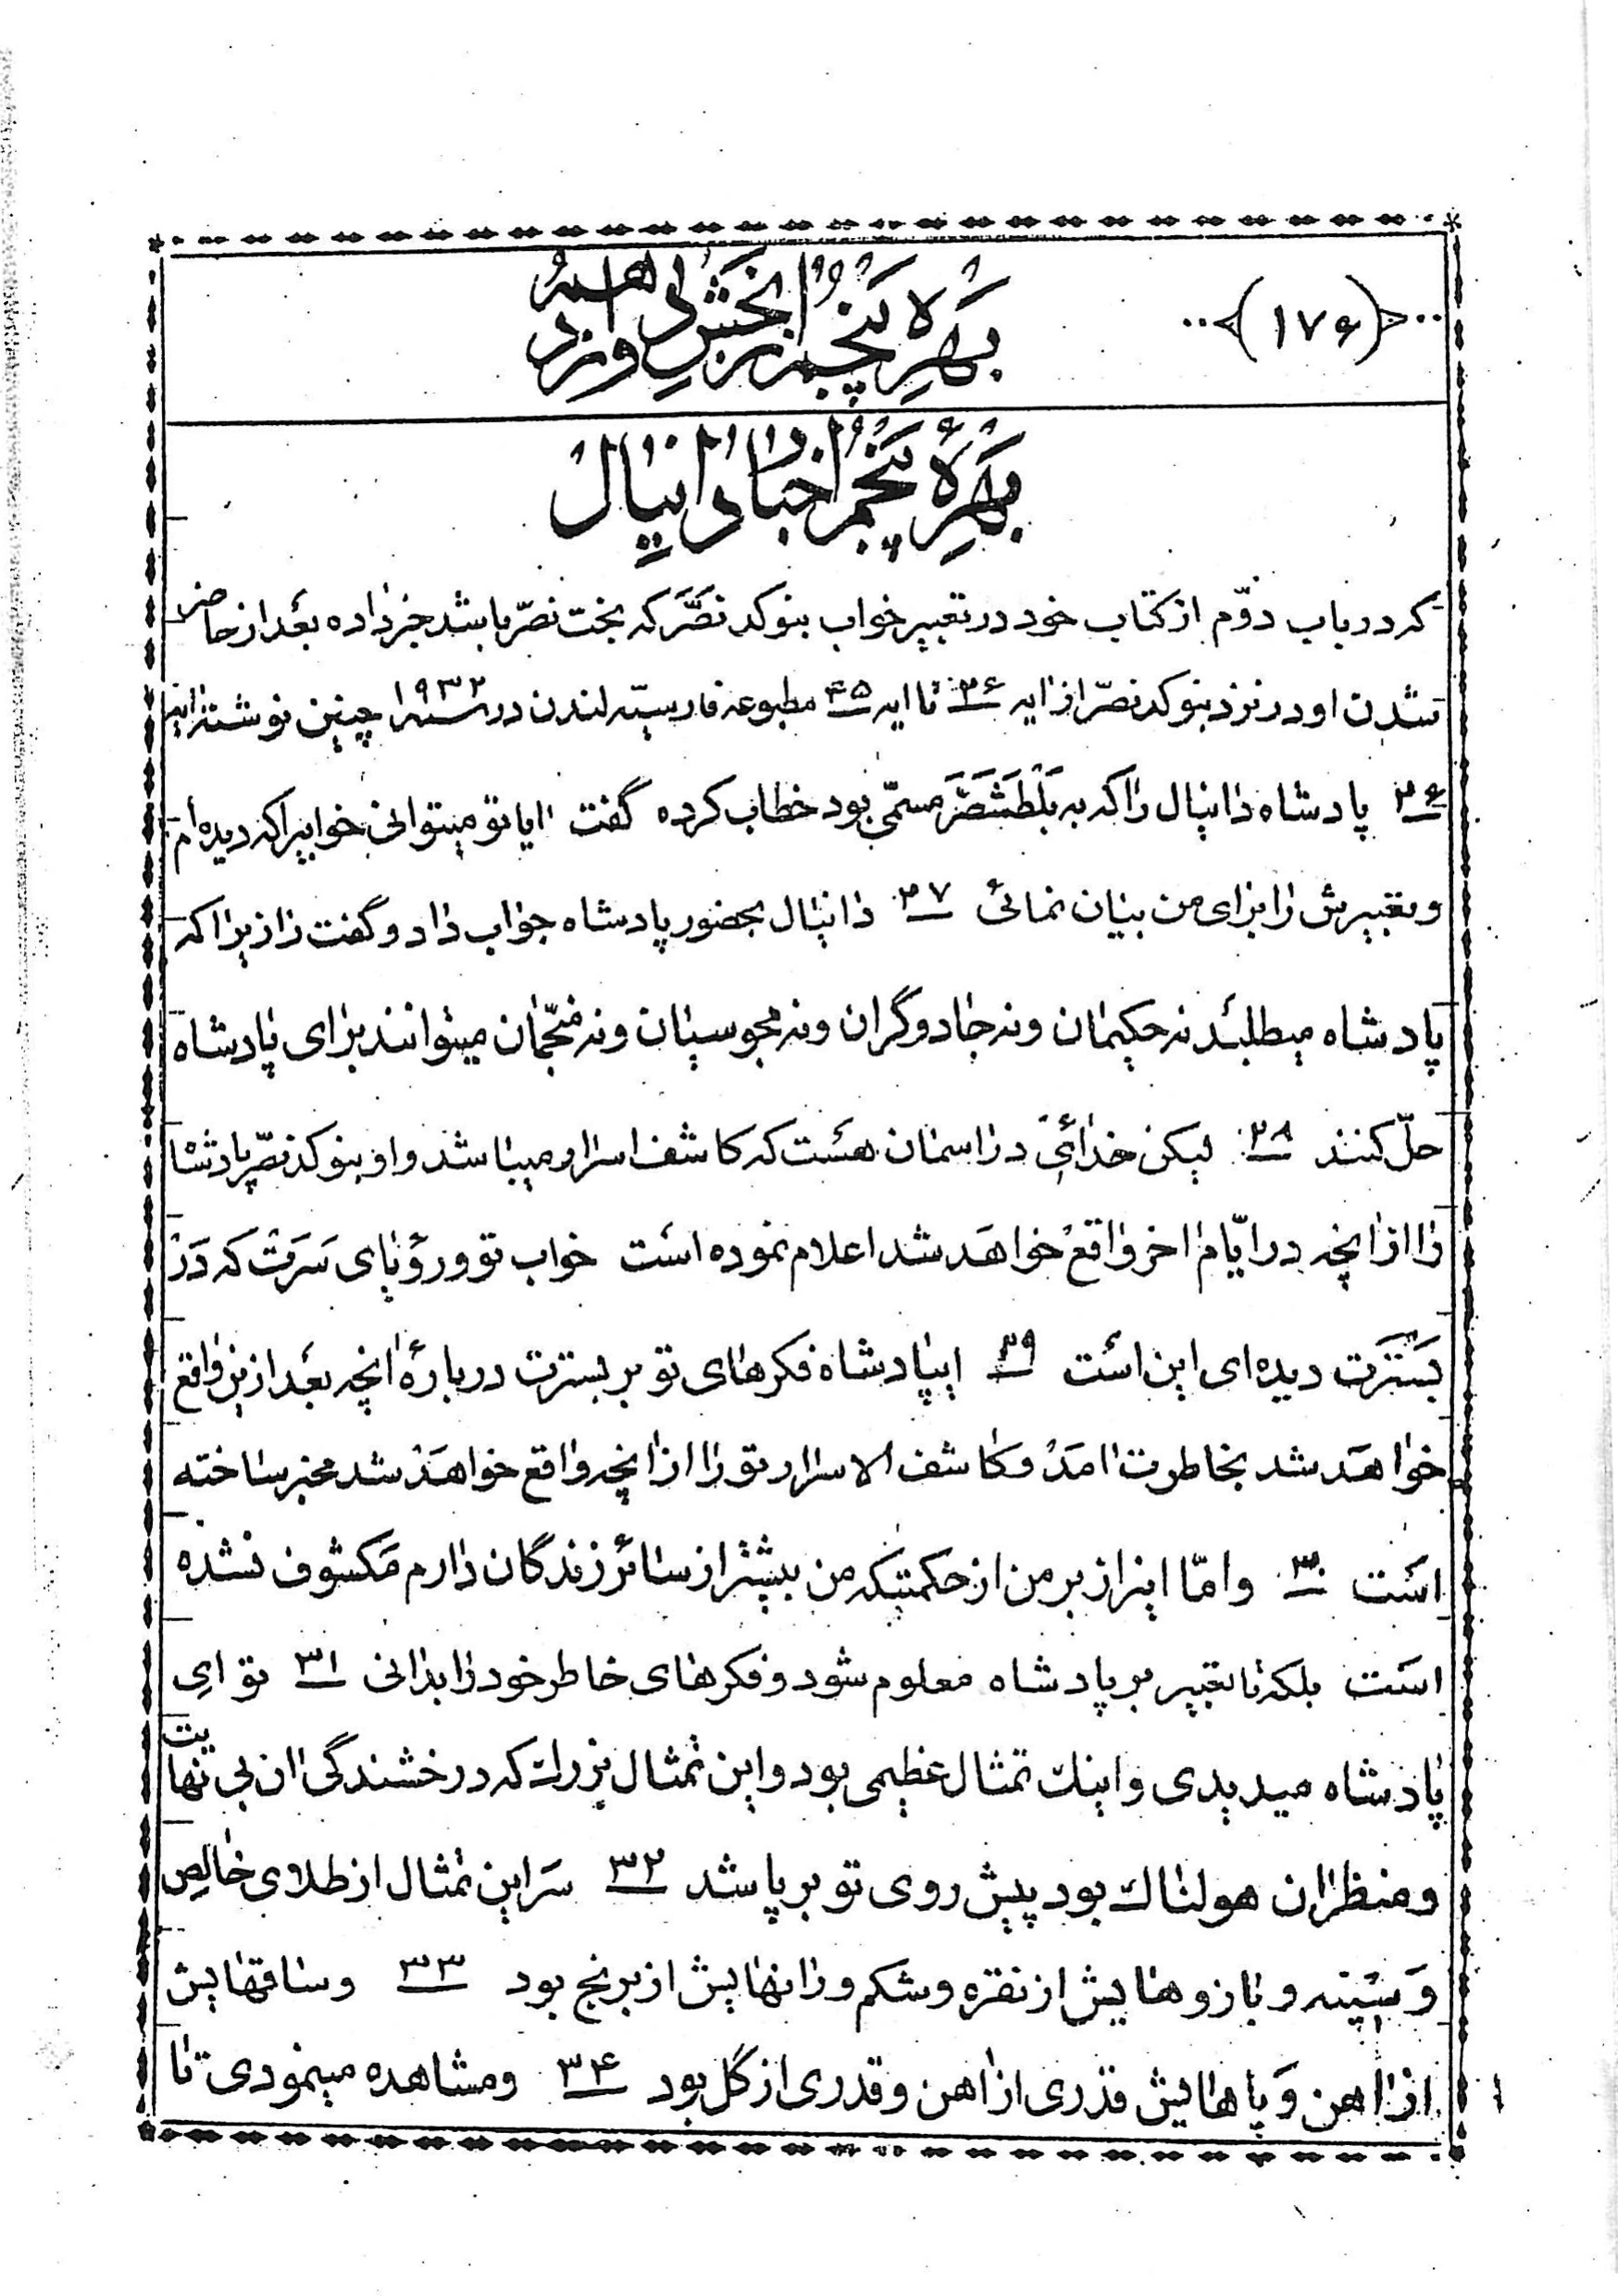 (۱۷۶)
بهرۀ پنجم از بخش دوازدهم
بهرۀ پنجم اخبار دانیال
که در باب دوّم از کتاب خود در تعبیر خواب بنوکد نصّر که بخت نصّر باشد خبر داده بعد از حاضر
شدن او در نزد بنوکد نصّر از ایه ۲۶ تا ایه ۴۵ مطبوعه فارسیه لندن در سنه ۱۹۳۲ چنین نوشته اند
۲۶ پادشاه دانیال را که به بلطشصّر مسمّی بود خطاب کرده گفت ایا تو میتوانی خوابیرا که دیده‌ام
و تعبیرش را برای من بیان نمائی ۲۷ دانیال بحضور پادشاه جواب داد و گفت رازیرا که
پادشاه میطلبد نه حکیمان و نه جادوگران و نه مجوسیان و نه منجّمان میتوانند برای پادشاه
حلّ کنند ۲۸ لیکن خدائی در اسمان هست که کاشف اسرار میباشد و او بنوکد نصّر پادشا
را از انچه در ایّام اخر واقع خواهد شد اعلام نموده است خواب تو و رؤیای سرت که در
بسترت دیده‌ای این است ۲۹ ایپادشاه فکرهای تو بر بسترت دربارۀ انچه بعد ازین واقع
خواهد شد بخاطرت امد و کاشف الاسرار تو را از انچه واقع خواهد شد مخبر ساخته
است ۳۰ و امّا اینراز بر من از حکمتیکه من بیشتر از سائر زندگان دارم مکشوف نشده
است بلکه تا تعبیر بر پادشاه معلوم شود و فکرهای خاطر خود را بدانی ۳۱ تو ای
پادشاه میدیدی و اینك تمثال عظیمی بود و این تمثال بزرك که درخشندگی ان بی نهایت
و منظر ان هولناك بود پیش روی تو بر پا شد ۳۲ سر این تمثال از طلای خالص
و سینه و بازوهایش از نقره و شکم و رانهایش از برنج بود ۳۳ و ساقهایش
از اهن و پاهایش قدری از اهن و قدری از گل بود ۳۴ و مشاهده مینمودی تا